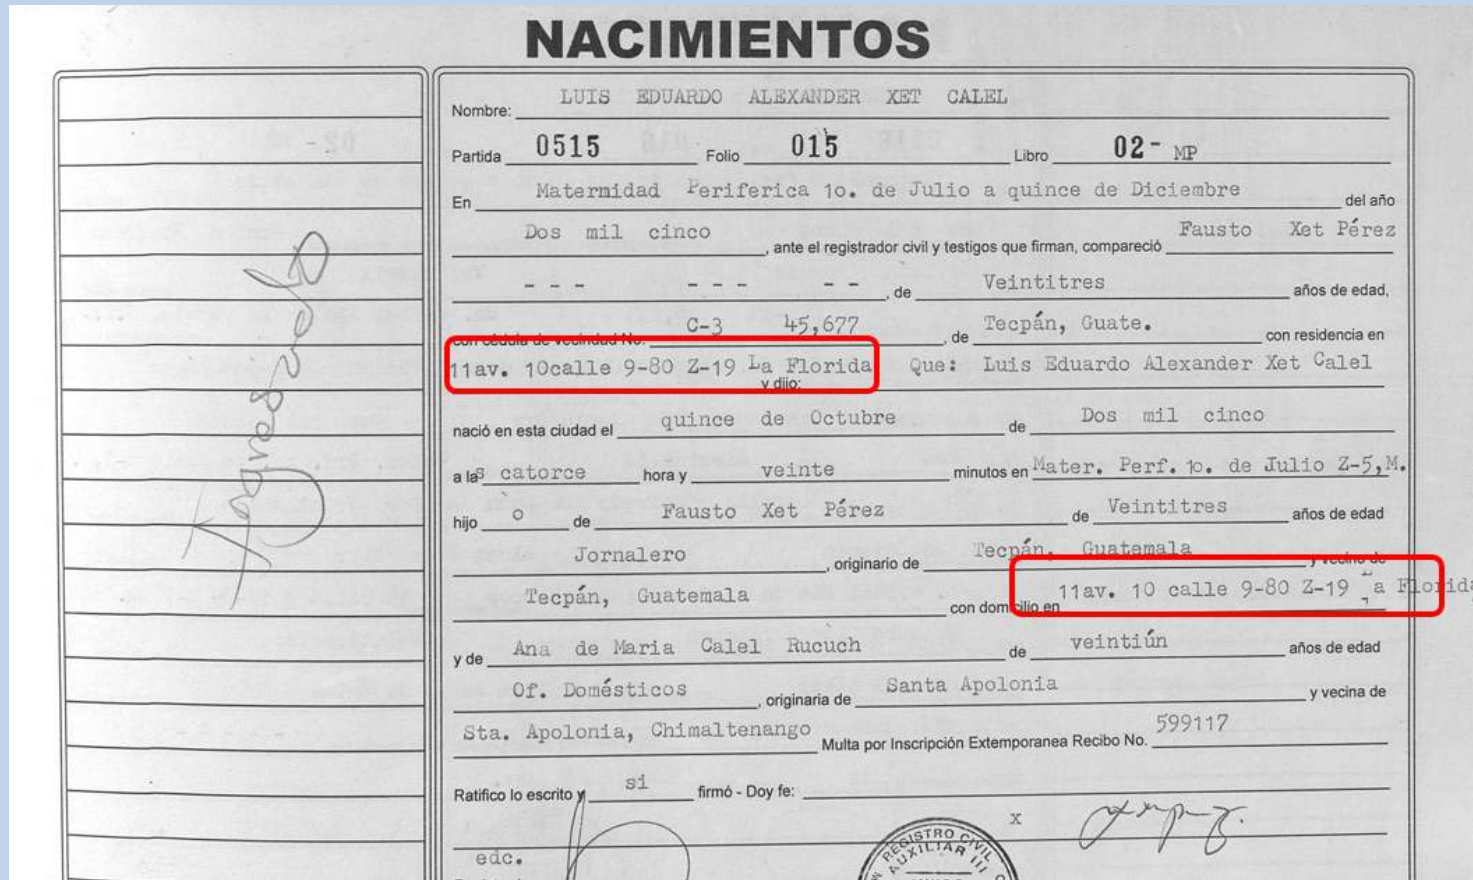 NACIMIENTOS
Nombre: LUIS EDUARDO ALEXANDER XET CALEL
Partida 0515 Folio 015 Libro 02- MP
En Maternidad Periferica 1o. de Julio a quince de Diciembre del año
Dos mil cinco, ante el registrador civil y testigos que firman, compareció Fausto Xet Pérez
- - - - - - - -, de Veintitres años de edad,
con cédula de vecindad No. C-3 45,677, de Tecpán, Guate. con residencia en
11av. 10calle 9-80 Z-19 La Florida y dijo: Que: Luis Eduardo Alexander Xet Calel
nació en esta ciudad el quince de Octubre de Dos mil cinco
a las catorce hora y veinte minutos en Mater. Perf. 1o. de Julio Z-5,M.
hijo o de Fausto Xet Pérez de Veintitres años de edad
Jornalero, originario de Tecpán, Guatemala y vecino de
Tecpán, Guatemala con domicilio en 11av. 10 calle 9-80 Z-19 La Florida
y de Ana de Maria Calel Rucuch de veintiún años de edad
Of. Domésticos, originaria de Santa Apolonia y vecina de
Sta. Apolonia, Chimaltenango Multa por Inscripción Extemporanea Recibo No. 599117
Ratifico lo escrito y si firmó - Doy fe:
x
edc.
REGISTRO CIVIL
AUXILIAR III